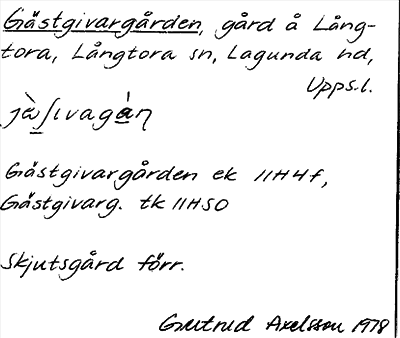 Gästgivargården, gård å Lång-
tora, Långtora sn, Lagunda hd,
Upps.l.
jæ̀ʃıvagán
Gästgivargården ek 11H4f,
Gästgivarg. tk 11HSO
Skjutsgård förr.
Gertrud Axelsson 1978